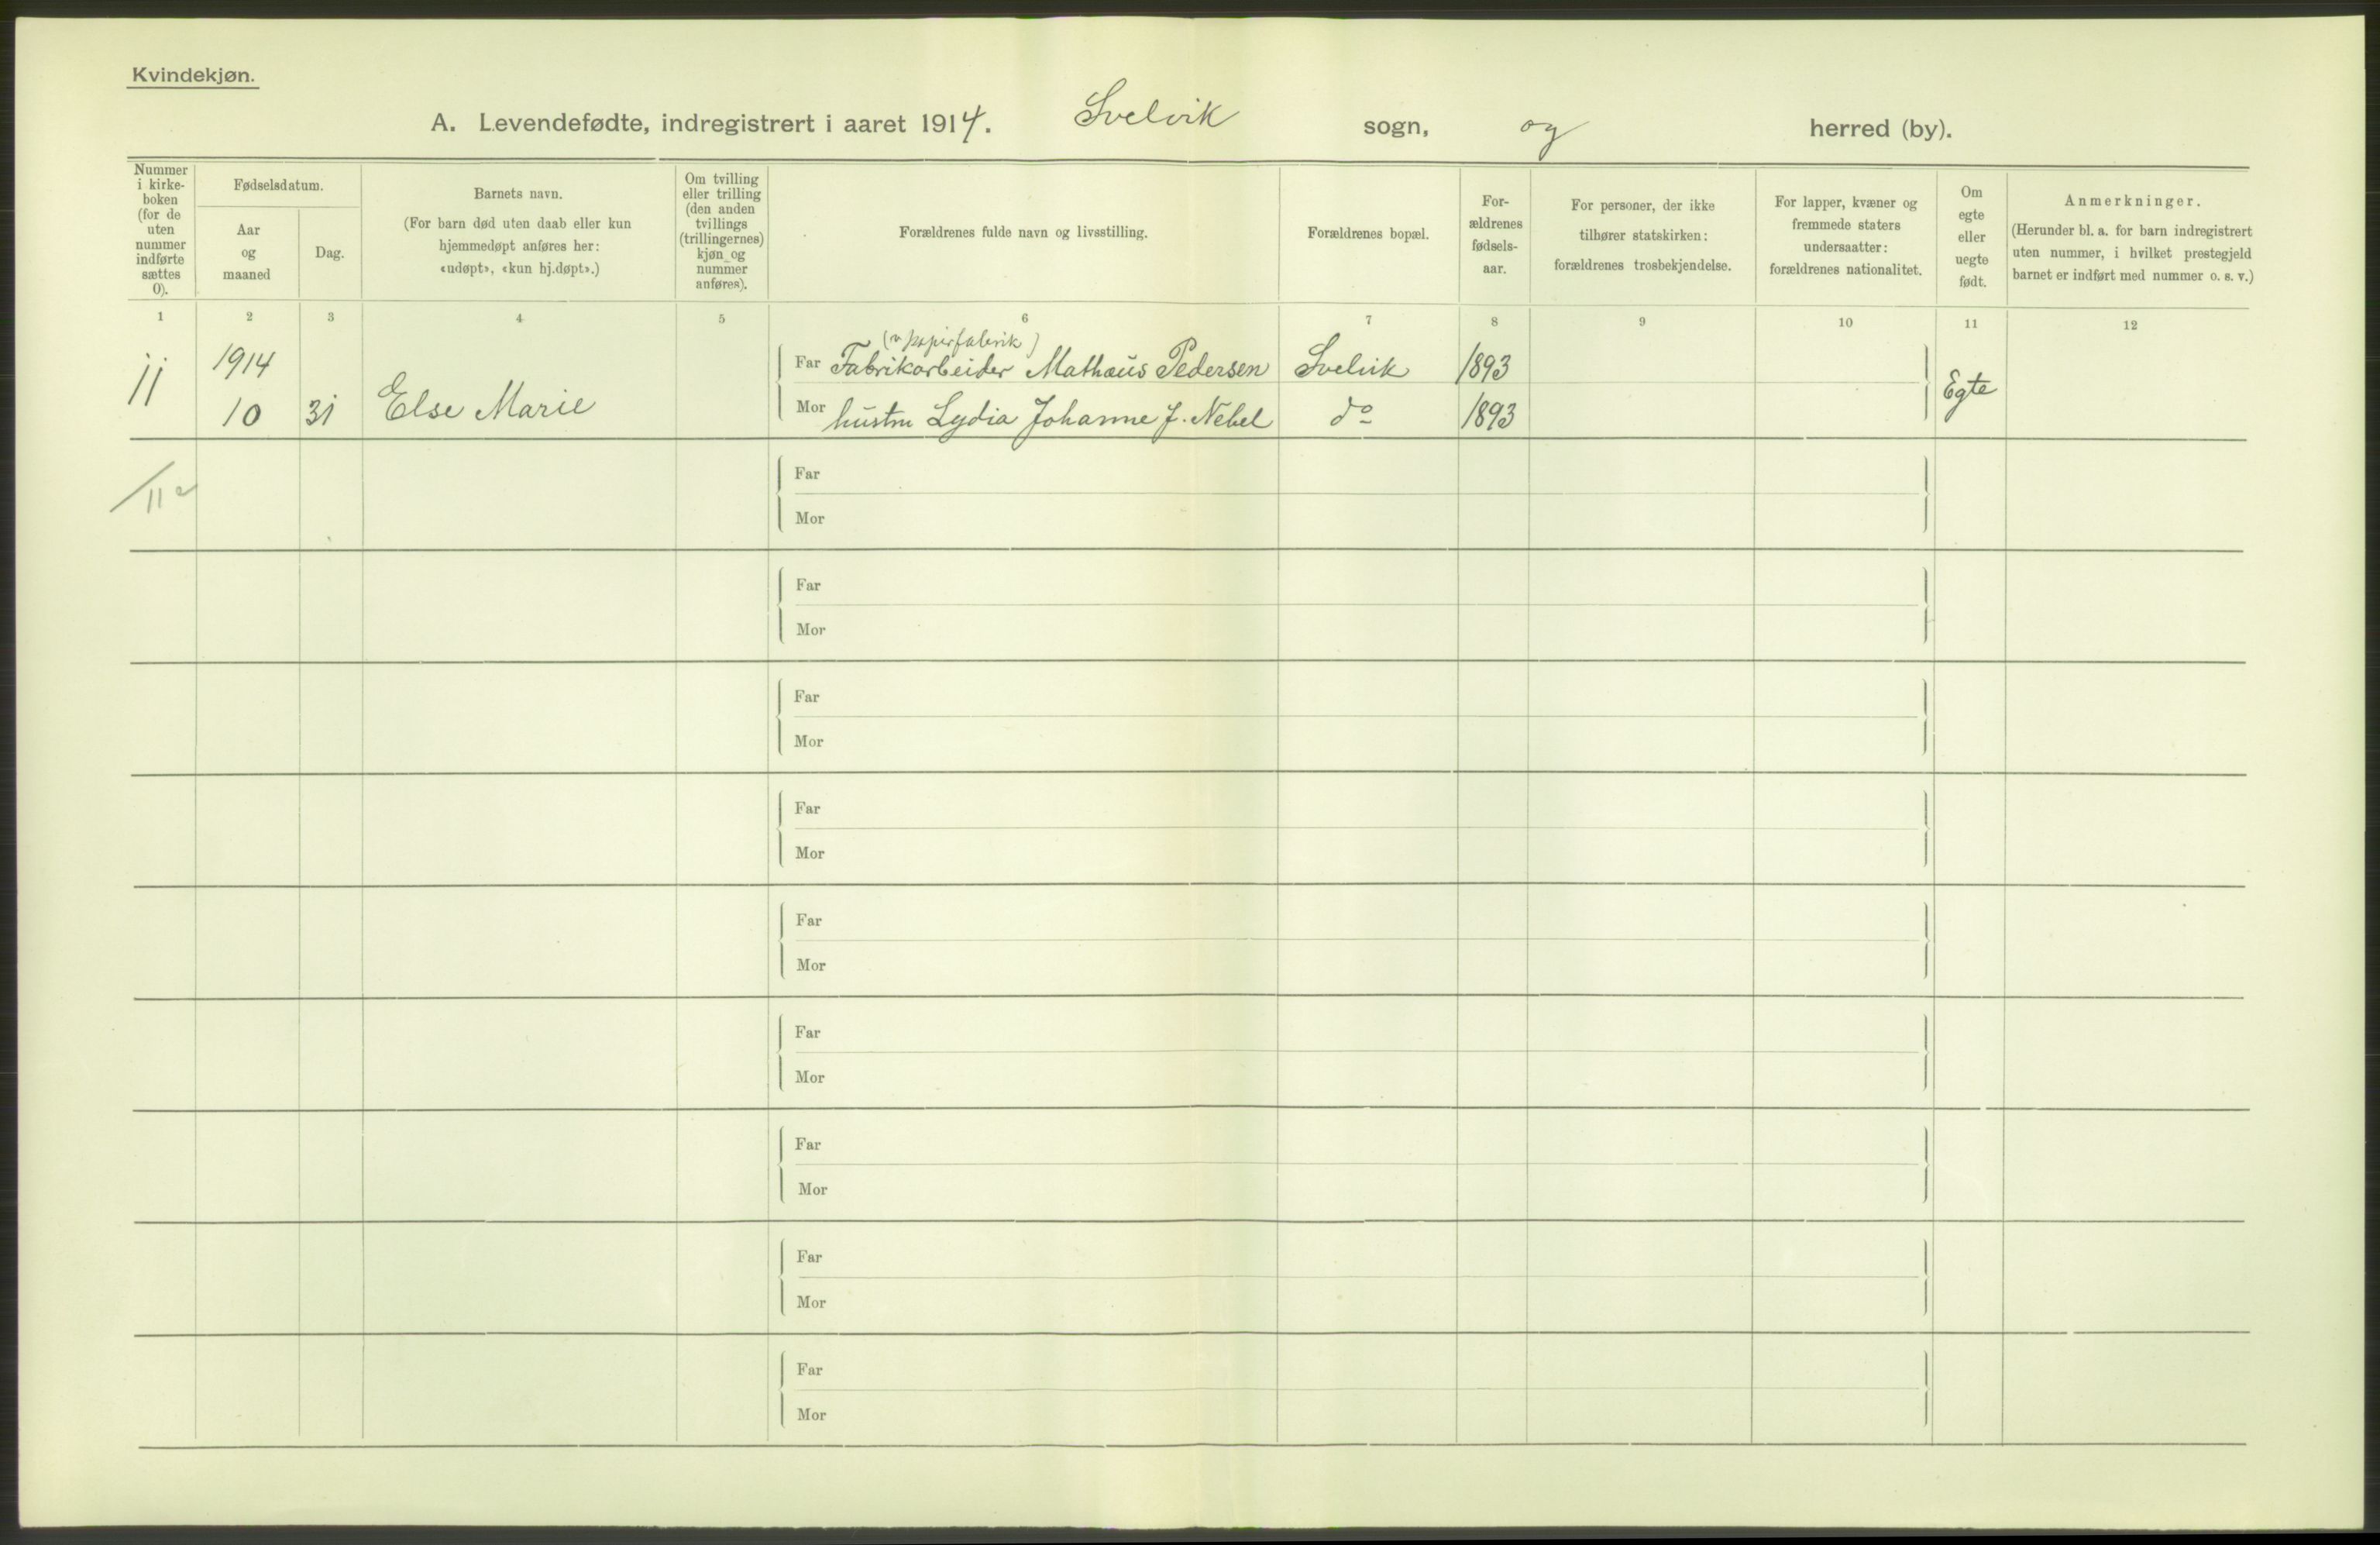 Kvindekjøn.
A. Levendefødte, indregistrert i aaret 1914. Svelvik sogn, og herred (by).
Nummer
i kirke-
boken
(for de
uten
nummer
indførte
sættes
0).
Fødselsdatum.
Aar
og
maaned
Dag.
Barnets navn.
(For barn død uten daab eller kun
hjemmedøpt anføres her:
«udøpt», «kun hj.døpt».)
Om tvilling
eller trilling
(den anden
tvillings
(trillingernes)
kjøn og
nummer
anføres).
Forældrenes fulde navn og livsstilling.
Forældrenes bopæl.
For-
ældrenes
fødsels-
aar.
For personer, der ikke
tilhører statskirken:
forældrenes trosbekjendelse.
For lapper, kvæner og
fremmede staters
undersaatter:
forældrenes nationalitet.
Om
egte
eller
uegte
født.
Anmerkninger.
(Herunder bl. a. for barn indregistrert
uten nummer, i hvilket prestegjeld
barnet er indført med nummer o. s. v.)
1 2 3 4 5 6 7 8 9 10 11 12
(v papirfabrik)
11 1914 Far Fabrikarbeider Mathæus Pedersen Svelvik 1893 Egte
10 31 Else Marie Mor hustru Lydia Johanne f. Nebel do 1893
Far
11
Mor
Far
Mor
Far
Mor
Far
Mor
Far
Mor
Far
Mor
Far
Mor
Far
Mor
Far
Mor